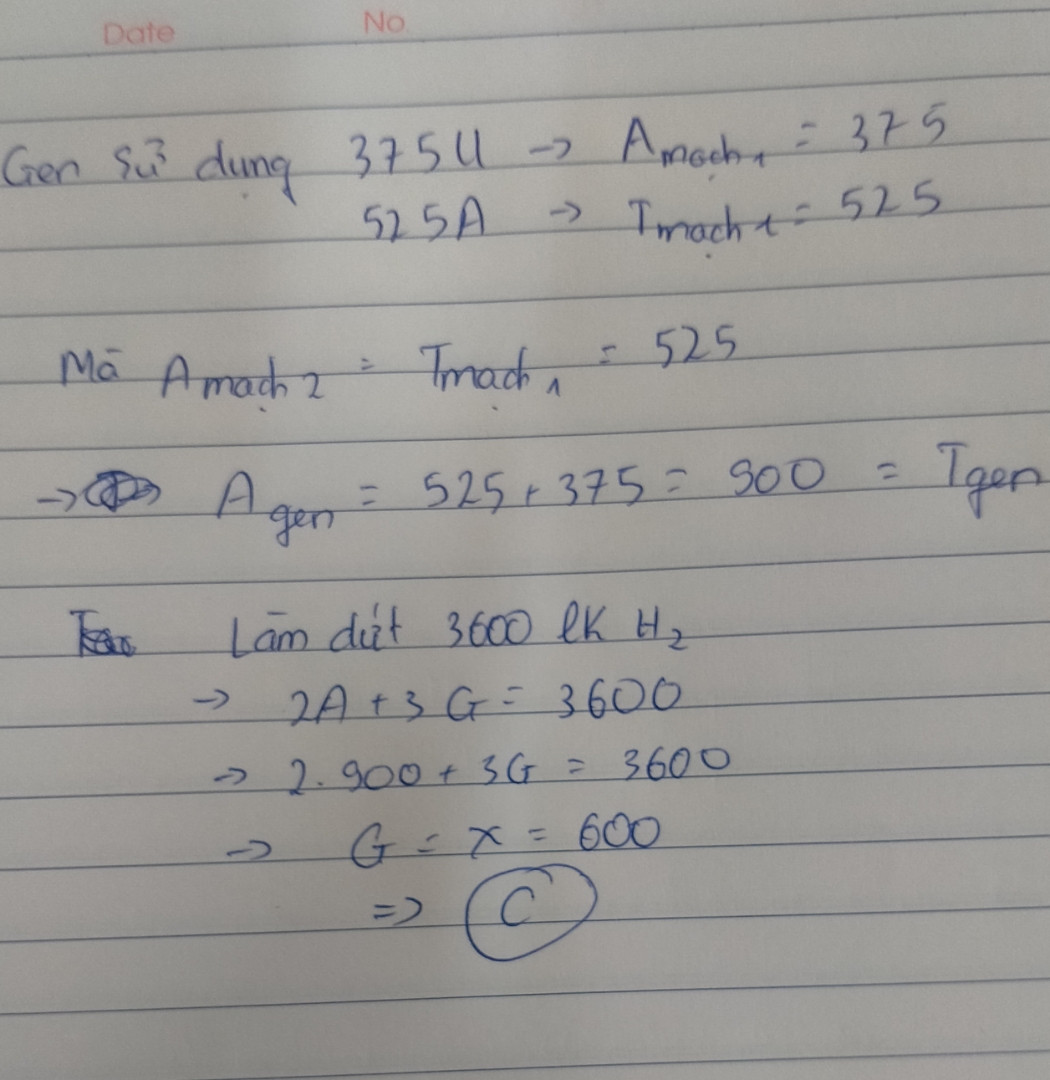 Date No
Gen sử dụng 375U -> A mạch 1 = 375
525A -> T mạch 1 = 525
Mà A mạch 2 = T mạch 1 = 525
-> A gen = 525 + 375 = 900 = T gen
Làm đứt 3600 lk H2
-> 2A + 3G = 3600
-> 2.900 + 3G = 3600
-> G = x = 600
=> C